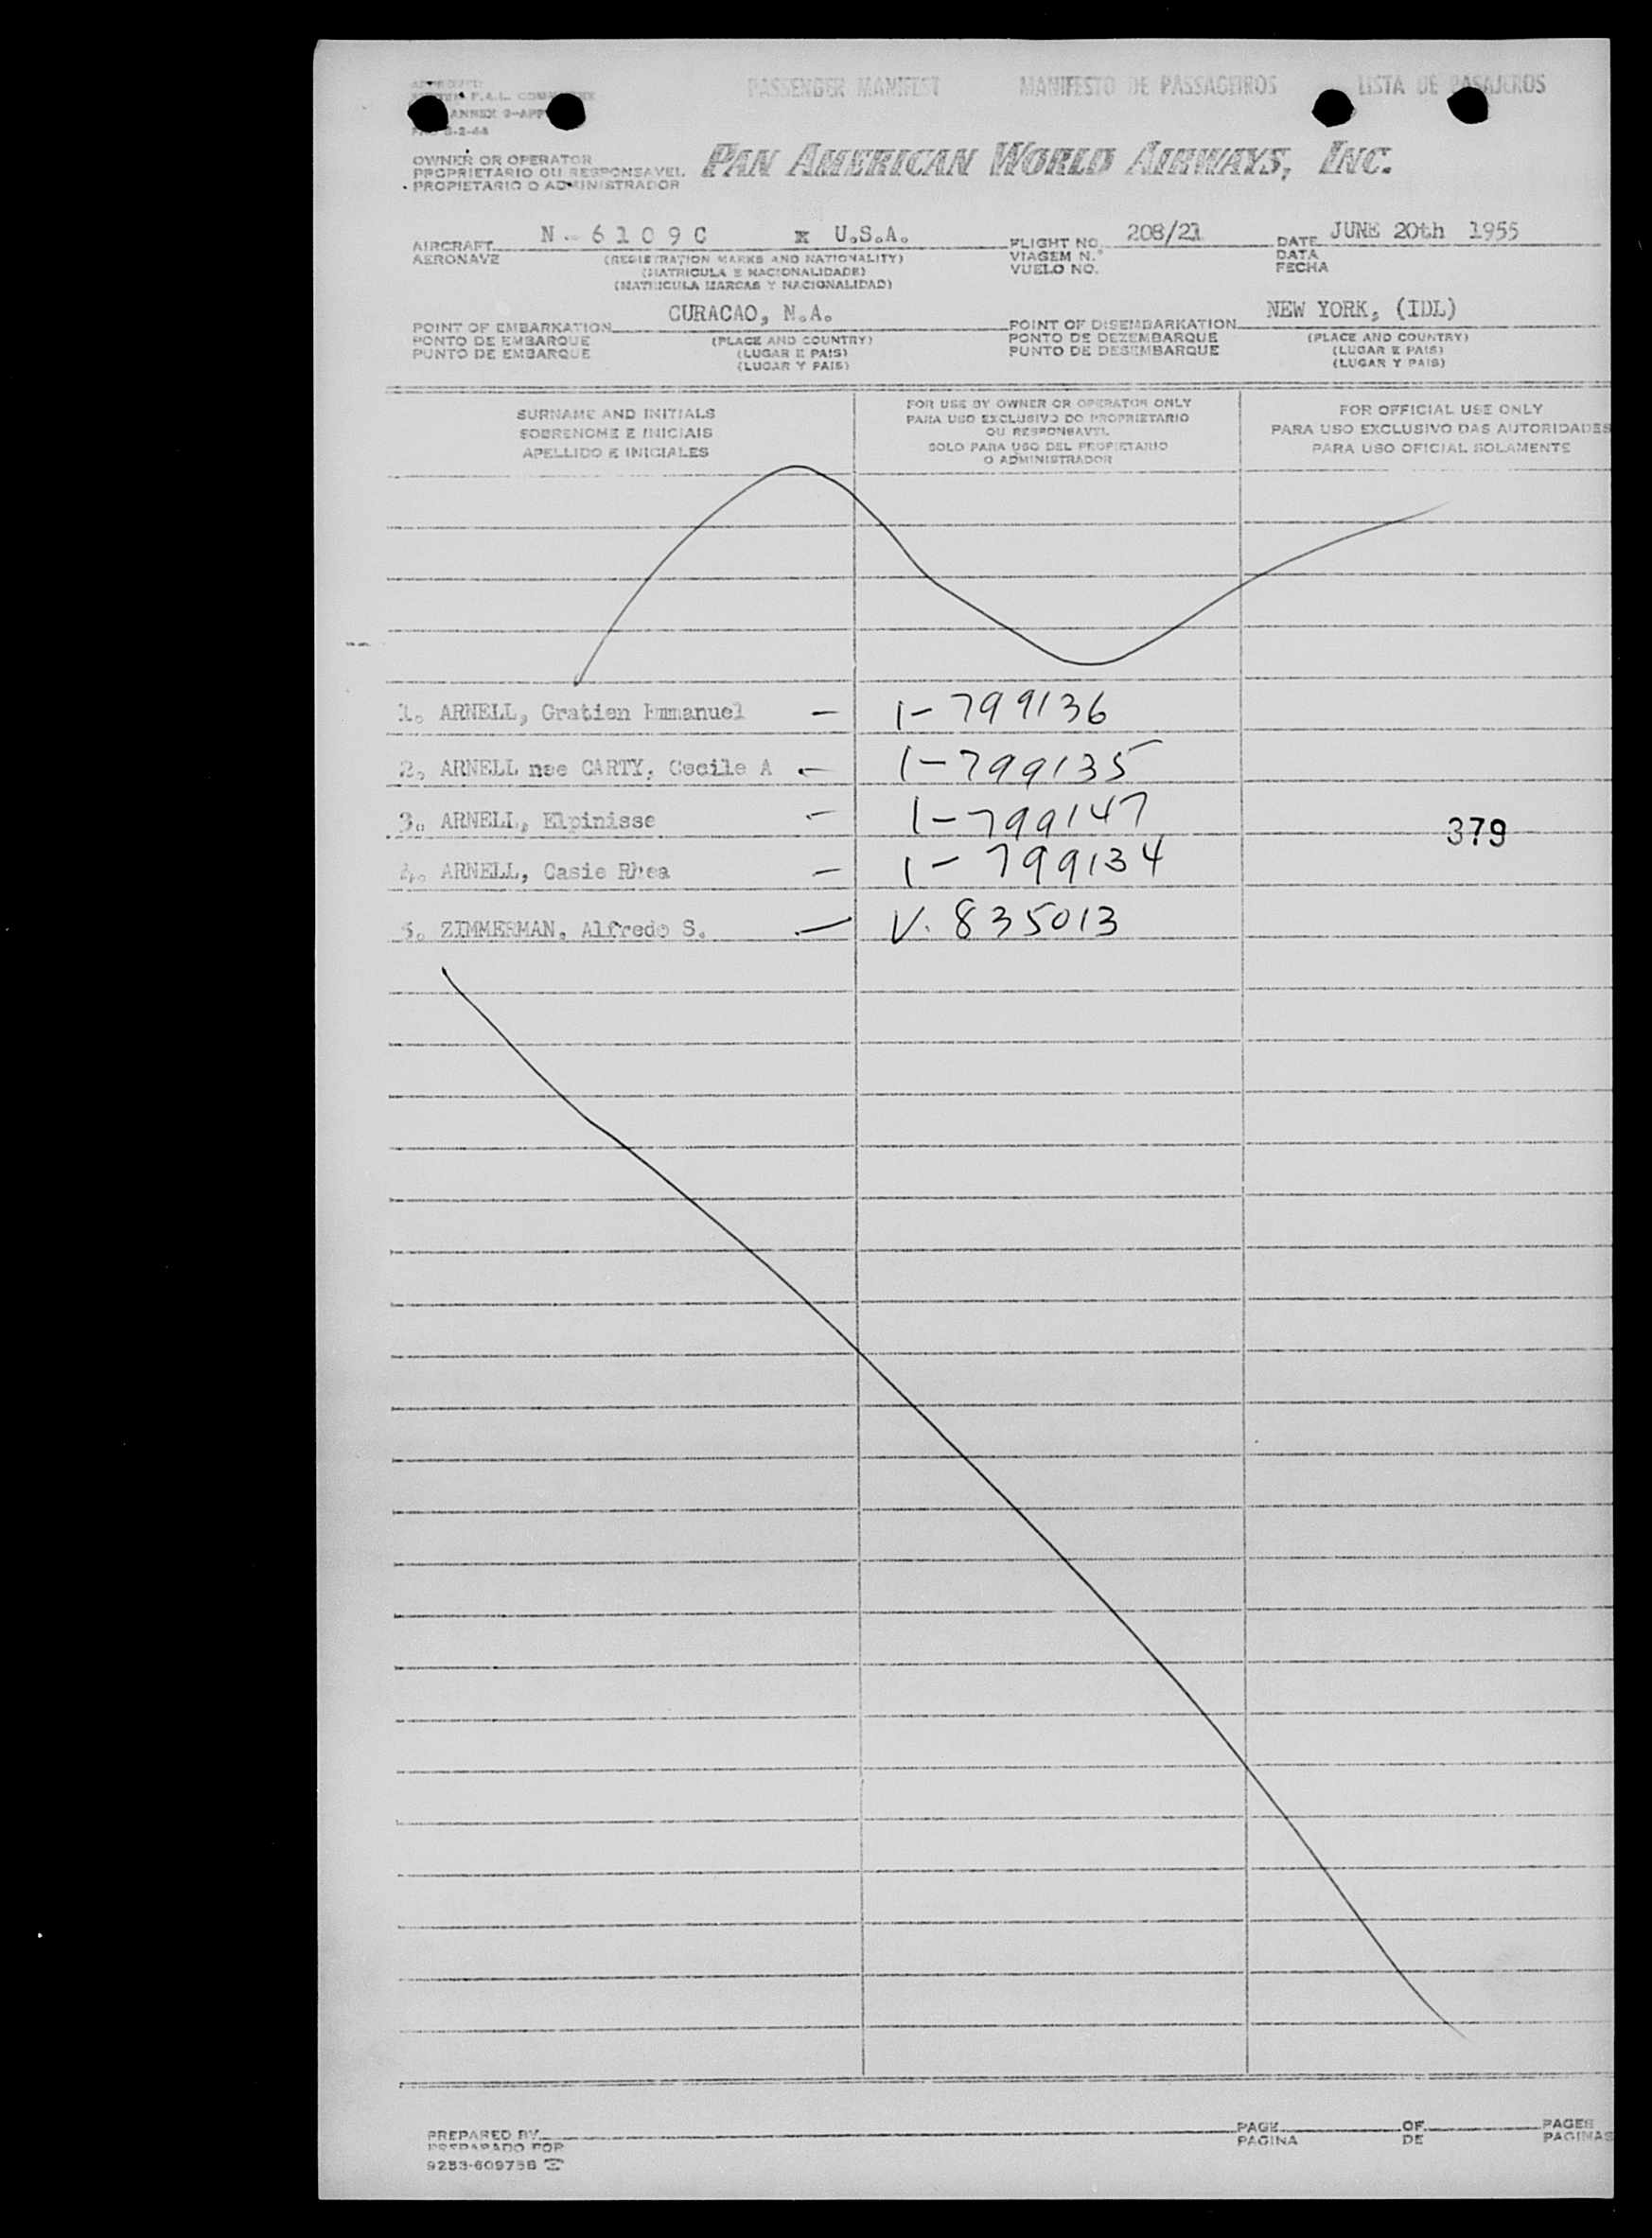 APPROVED
PASSENGER MANIFEST MANIFESTO DE PASSAGEIROS LISTA DE PASAJEROS
F.A.L. COMMITTEE
ANNEX 9-APP
3-2-44
OWNER OR OPERATOR
PROPRIETARIO OU RESPONSAVEL
PROPIETARIO O ADMINISTRADOR
PAN AMERICAN WORLD AIRWAYS, INC.
AIRCRAFT N - 6 1 0 9 C x U.S.A. FLIGHT NO. 208/21 DATE JUNE 20th 1955
AERONAVE (REGISTRATION MARKS AND NATIONALITY) VIAGEM N.° DATA
(MATRICULA E NACIONALIDADE) VUELO NO. FECHA
(MATRICULA MARCAS Y NACIONALIDAD)
POINT OF EMBARKATION CURACAO, N.A. POINT OF DISEMBARKATION NEW YORK, (IDL)
PONTO DE EMBARQUE (PLACE AND COUNTRY) PONTO DE DEZEMBARQUE (PLACE AND COUNTRY)
PUNTO DE EMBARQUE (LUGAR E PAIS) PUNTO DE DESEMBARQUE (LUGAR E PAIS)
(LUGAR Y PAIS) (LUGAR Y PAIS)
SURNAME AND INITIALS
SOBRENOME E INICIAIS
APELLIDO E INICIALES
FOR USE BY OWNER OR OPERATOR ONLY
PARA USO EXCLUSIVO DO PROPRIETARIO
OU RESPONSAVEL
SOLO PARA USO DEL PROPIETARIO
O ADMINISTRADOR
FOR OFFICIAL USE ONLY
PARA USO EXCLUSIVO DAS AUTORIDADES
PARA USO OFICIAL SOLAMENTE
1. ARNELL, Gratien Emmanuel — 1-799136
2. ARNELL nee CARTY, Cecile A — 1-799135
3. ARNELL, Elpinisse — 1-799147
379
4. ARNELL, Casie Rhea — 1-799134
5. ZIMMERMAN, Alfredo S. — V. 835013
PREPARED BY PAGE OF PAGES
PREPARADO POR PAGINA DE PAGINAS
9253-609756